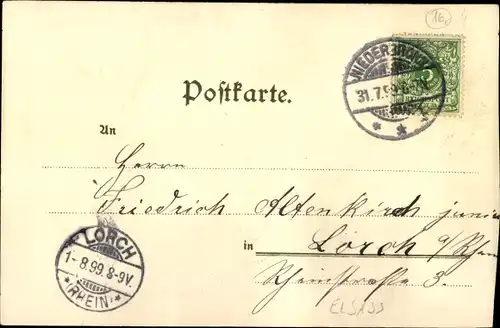 16.
NIEDERBRONN
31.7.99.8-9N.
5
Postkarte.
An
Herrn
Friedrich Altenkirch junior
in Lorch a/Rhein
Rheinstraße 3.
LORCH
1-8.99.8-9V.
*(RHEIN)*
ELSASS